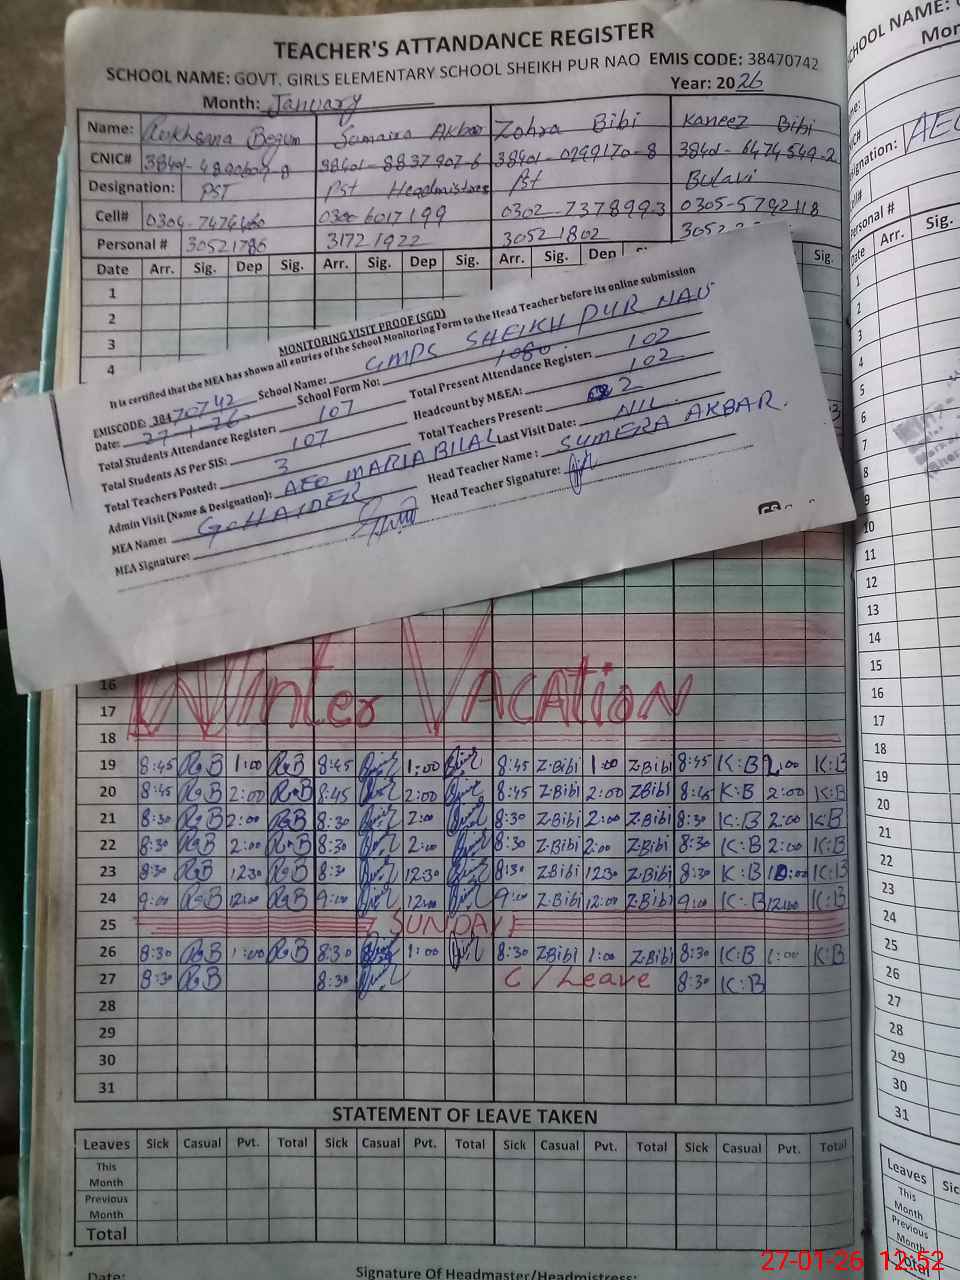 TEACHER'S ATTANDANCE REGISTER
SCHOOL NAME: GOVT. GIRLS ELEMENTARY SCHOOL SHEIKH PUR NAO EMIS CODE: 38470742
Month: January Year: 2026
Name: Rukhsana Begum Samaira Akbar Zohra Bibi Kaneez Bibi
CNIC#
Designation: PST Pst Headmistress Pst Bulavi
Cell# 0300 6017199 0302-7378993 0305-5792118
Personal # 30521786 31721922 30521802
Date Arr. Sig. Dep Sig. Arr. Sig. Dep Sig. Arr. Sig. Dep Sig.
1
2
3
4
MONITORING VISIT PROOF (SGD)
It is certified that the MEA has shown all entries of the School Monitoring Form to the Head Teacher before its online submission
EMISCODE: 38470742 School Name: GMPS SHEIKH PUR NAU
Date: 27-1-26 School Form No: 1080
Total Students Attendance Register: 107 Total Present Attendance Register: 102
Total Students AS Per SIS: 107 Headcount by M&EA: 102
Total Teachers Posted: 3 Total Teachers Present: 2
Admin Visit (Name & Designation): AEO MARIA BILAL Last Visit Date: NIL
MEA Name: G. HAIDER Head Teacher Name: SUMERA AKBAR.
MEA Signature: Head Teacher Signature:
16
17
18
Winter Vacation
19 8:45 R.B 1:00 R.B 8:45 1:00 8:45 Z.Bibi 1:00 Z.Bibi 8:45 K:B 2:00 K:B
20 8:45 R.B 2:00 R.B 8:45 2:00 8:45 Z.Bibi 2:00 Z.Bibi 8:45 K:B 2:00 K:B
21 8:30 R.B 2:00 R.B 8:30 2:00 8:30 Z.Bibi 2:00 Z.Bibi 8:30 K:B 2:00 K:B
22 8:30 R.B 2:00 R.B 8:30 2:00 8:30 Z.Bibi 2:00 Z.Bibi 8:30 K:B 2:00 K:B
23 8:30 R.B 12:30 R.B 8:30 12:30 8:30 Z.Bibi 12:30 Z.Bibi 8:30 K:B K:B
24 9:00 R.B 12:00 R.B 9:00 12:00 9:00 Z.Bibi 12:00 Z.Bibi 9:00 K:B 12:00 K:B
25 SUNDAY
26 8:30 R.B 1:00 R.B 8:30 1:00 8:30 Z.Bibi 1:00 Z.Bibi 8:30 K:B 1:00 K:B
27 8:30 R.B 8:30 C/Leave 8:30 K:B
28
29
30
31
STATEMENT OF LEAVE TAKEN
Leaves Sick Casual Pvt. Total Sick Casual Pvt. Total Sick Casual Pvt. Total Sick Casual Pvt. Total
This Month
Previous Month
Total
Date: Signature Of Headmaster/Headmistress:
Arr. Sig.
1
2
3
4
5
6
7
8
9
10
11
12
13
14
15
16
17
18
19
20
21
22
23
24
25
26
27
28
29
30
31
Leaves
This Month
Previous Month
Total
27-01-26 12:52